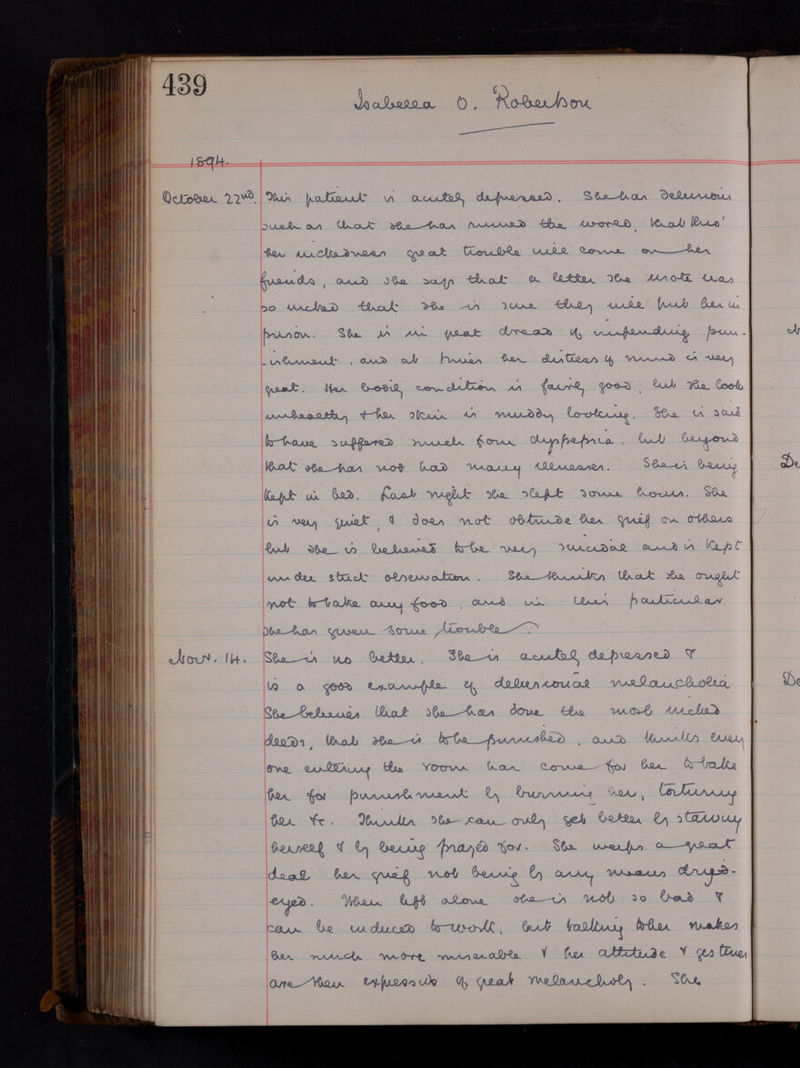 439
Isabella O. Robertson
1894.
October 22nd. This patient is acutely depressed. She has delusions
such as that she has ruined the world, that thro'
her wickedness great trouble will come on her
friends, and she says that a letter she wrote was
so wicked that she is sure they will put her in
prison. She is in great dread of impending pun-
-ishment, and at times her distress of mind is very
great. Her bodily condition is fairly good, but she looks
unhealthy & her skin is muddy looking. She is said
to have suffered much from dyspepsia, but beyond
that she has not had many illnesses. She is being
kept in bed. Last night she slept some hours. She
is very quiet, & does not obtrude her grief on others
but she is believed to be very suicidal and is kept
under strict observation. She thinks that she ought
not to take any food, and in this particular
she has given some trouble.
Nov. 14. She is no better. She is acutely depressed &
is a good example of delusional melancholia
She believes that she has done the most wicked
deeds, that she is to be punished, and thinks every
one entering the room has come for her to take
her for punishment by burning her, torturing
her &c. Thinks she can only get better by starving
herself & by being prayed for. She weeps a great
deal her grief not being by any means dryed-
eyed. When left alone she is not so bad &
can be induced to work, but talking to her makes
her much more miserable & her attitude & gestures
are then expressive of great melancholy. She
De
De